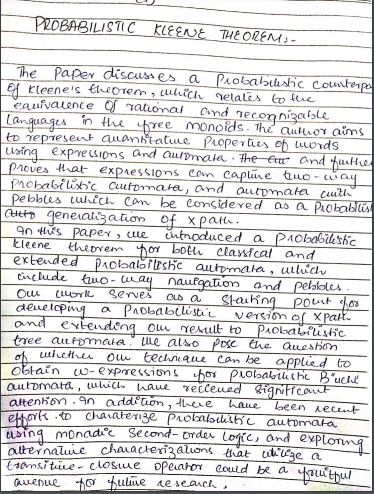 PROBABILISTIC KLEENE THEOREM:-
The Paper discusses a Probabilistic counterpa
of Kleene's theorem, which relates to the
equivalence of rational and recognizable
languages in the free monoids. The author aims
to represent quantitative Properties of words
using expressions and automata. The and further
proves that expressions can capture two-way
Probabilistic automata, and automata with
pebbles which can be considered as a Probabilist
generalization of Xpath.
In this paper, we introduced a probabilistic
kleene theorem for both classical and
extended Probabilistic automata, which
include two-way navigation and pebbles.
Our work serves as a starting point for
developing a Probabilistic version of Xpath
and extending our result to Probabilistic
tree automata. We also pose the question
of whether our technique can be applied to
obtain ω-expressions for probabilistic Büchi
automata, which have recieved significant
attention. In addition, there have been recent
efforts to charaterize Probabilistic automata
using monadic second-order logic, and exploring
alternative characterizations that utilize a
transitive-closure operator could be a fruitful
avenue for future research.